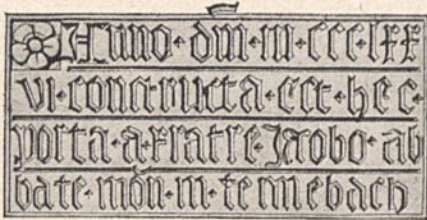 Anno · dm̄i · m · ccc · lxx
vi · constructa · est · hec ·
porta · a · fratre · Jacobo · ab
bate · moñ · in · tennebach